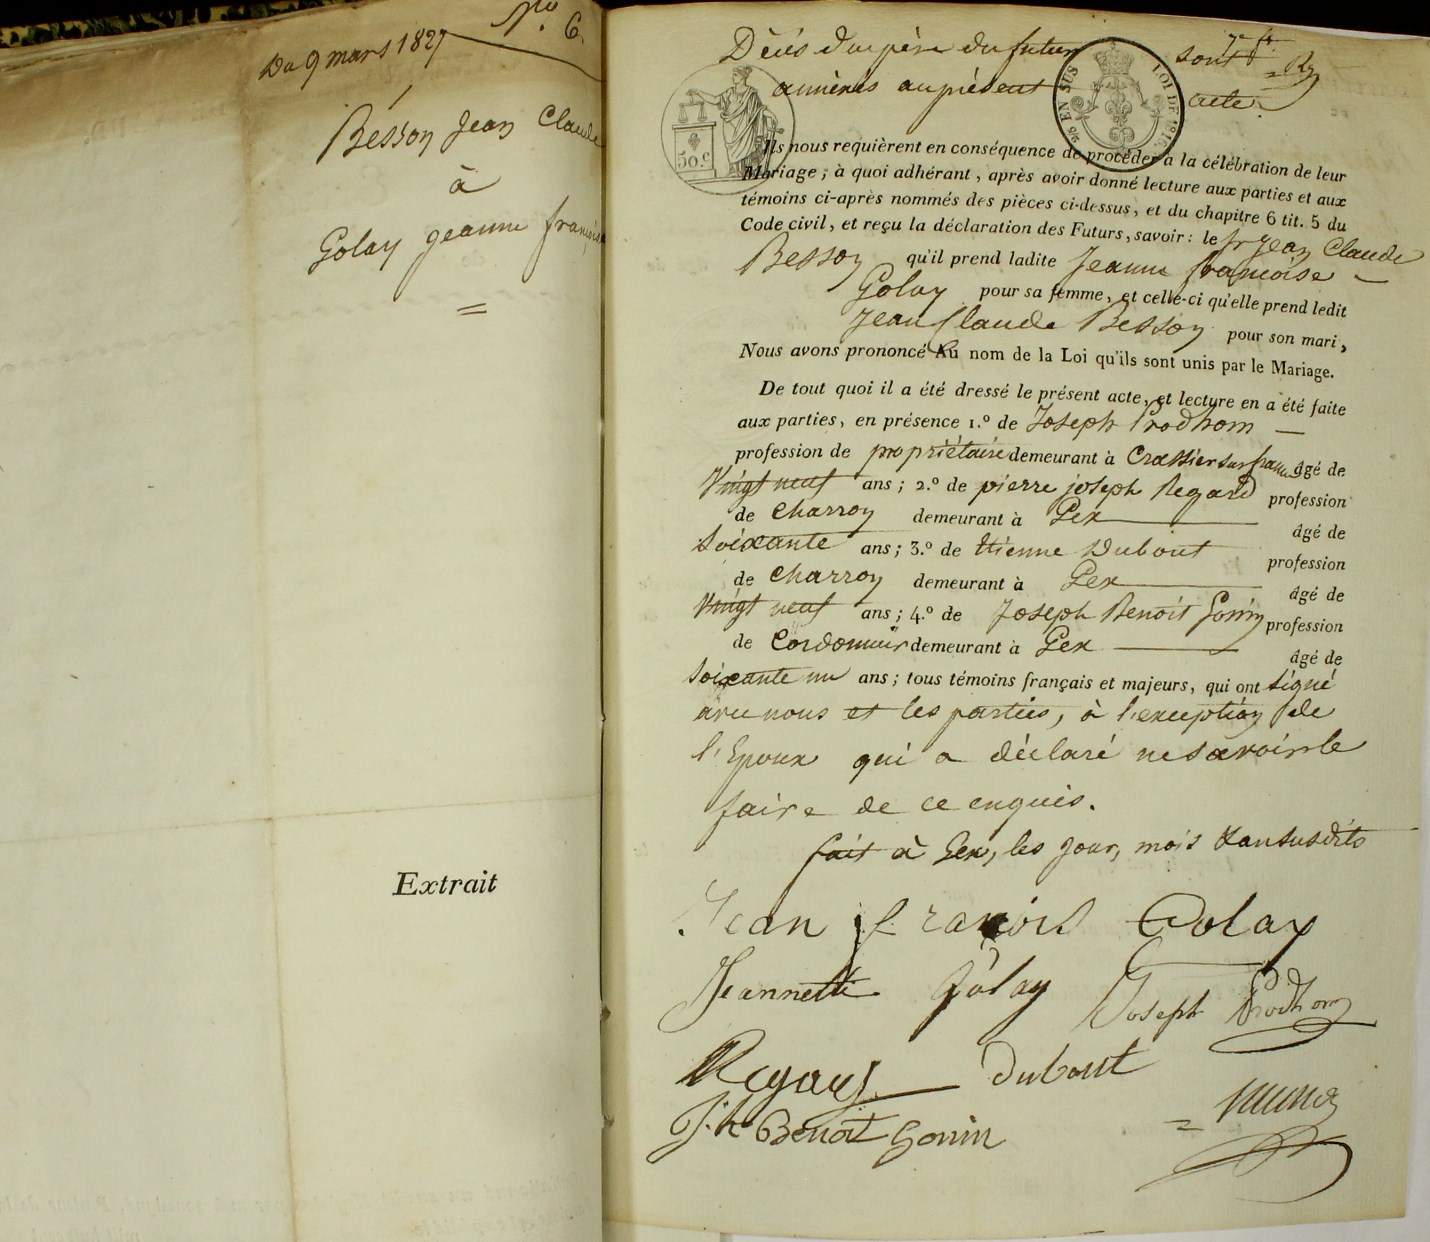 No. 6.
Du 9 mars 1827
Besson Jean Claude
à
Golay Jeanne françoise
=
Extrait
Décès du père du futur sont
annèxés au présent acte.
25 EN SUS LOI DE 1816
50.c
Ils nous requièrent en conséquence de procéder à la célébration de leur
Mariage ; à quoi adhérant, après avoir donné lecture aux parties et aux
témoins ci-après nommés des pièces ci-dessus, et du chapitre 6 tit. 5 du
Code civil, et reçu la déclaration des Futurs, savoir : le sr Jean Claude
Besson qu'il prend ladite Jeanne françoise
Golay pour sa femme, et celle-ci qu'elle prend ledit
Jean Claude Besson pour son mari,
Nous avons prononcé Au nom de la Loi qu'ils sont unis par le Mariage.
De tout quoi il a été dressé le présent acte, et lecture en a été faite
aux parties, en présence 1.º de Joseph Prodhom
profession de propriétaire demeurant à Crassier sur france âgé de
Vingt neuf ans ; 2.º de pierre joseph Regard profession
de Charron demeurant à Gex âgé de
Soixante ans ; 3.º de Etienne Dubout profession
de Charron demeurant à Gex âgé de
Vingt neuf ans ; 4.º de Joseph Benoit Gonin profession
de Cordonnier demeurant à Gex âgé de
Soixante un ans ; tous témoins français et majeurs, qui ont signé
avec nous et les parties, à l'exception de
l'Epoux qui a déclaré ne savoir le
faire de ce enquis.
fait à Gex, les jour, mois & an susdits
Jean francois Golay
Jeannette Golay Joseph Prodhom
Regard Dubout
J.h Benoit Gonin